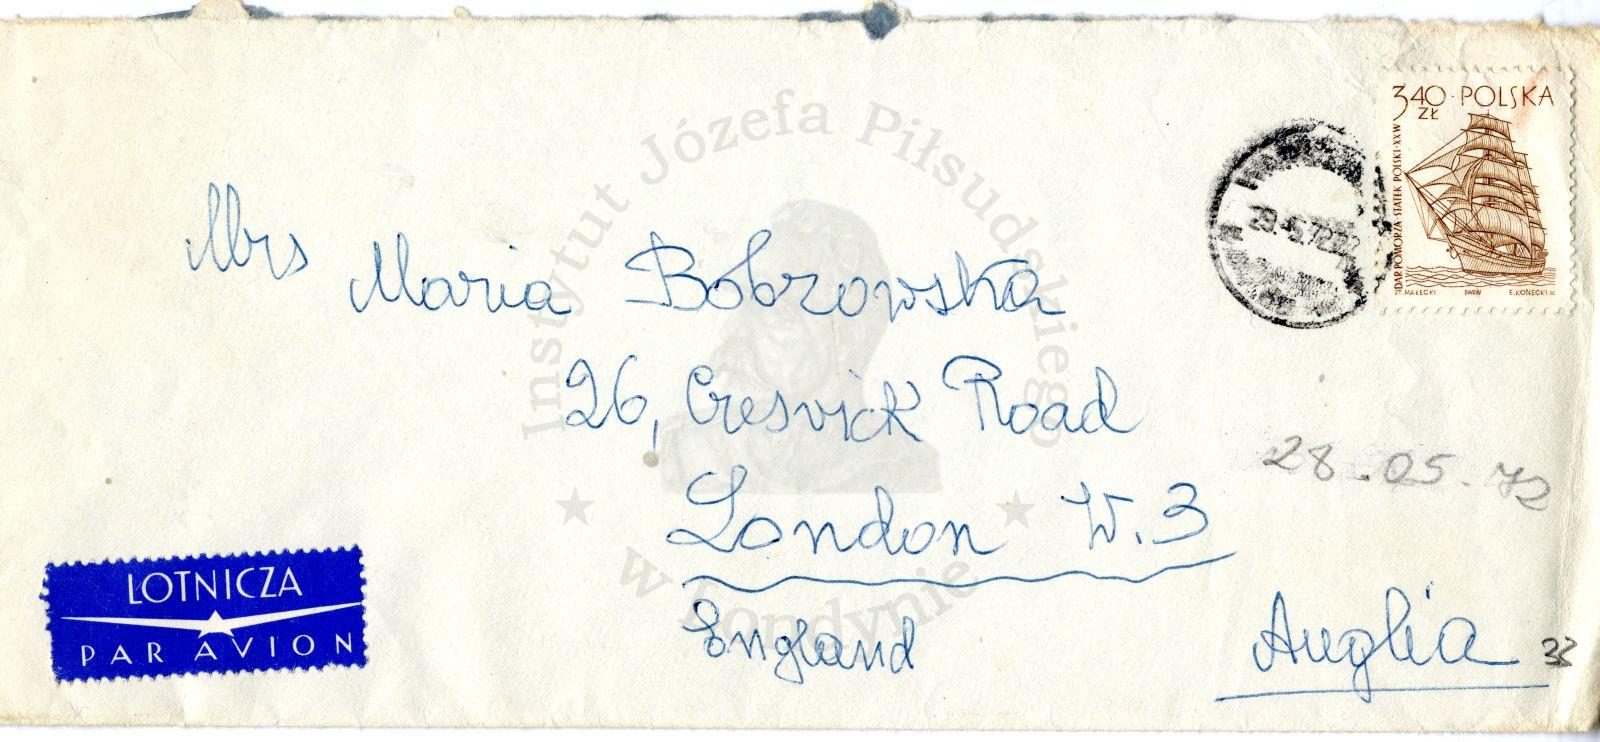 Instytut Józefa Piłsudskiego
w Londynie
3,40 ZŁ POLSKA
DAR POMORZA-STATEK POLSKI-XX W
T. MAŁECKI PWPW E. KONECKI sc.
29.-5.72
Mrs
Maria Bobrowska
26, Cresvick Road
London W.3
England
Anglia
28.05.72
33
LOTNICZA
PAR AVION